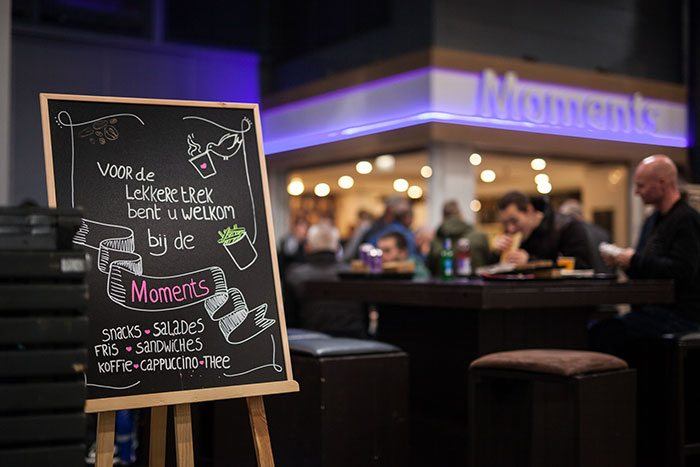 Moments
VOOR de
Lekkere trek
bent u welkom
bij de
Moments
SNACKS • SALADES
FRIS • SANDWICHES
KOFFIE • CAPPUCCINO • THEE